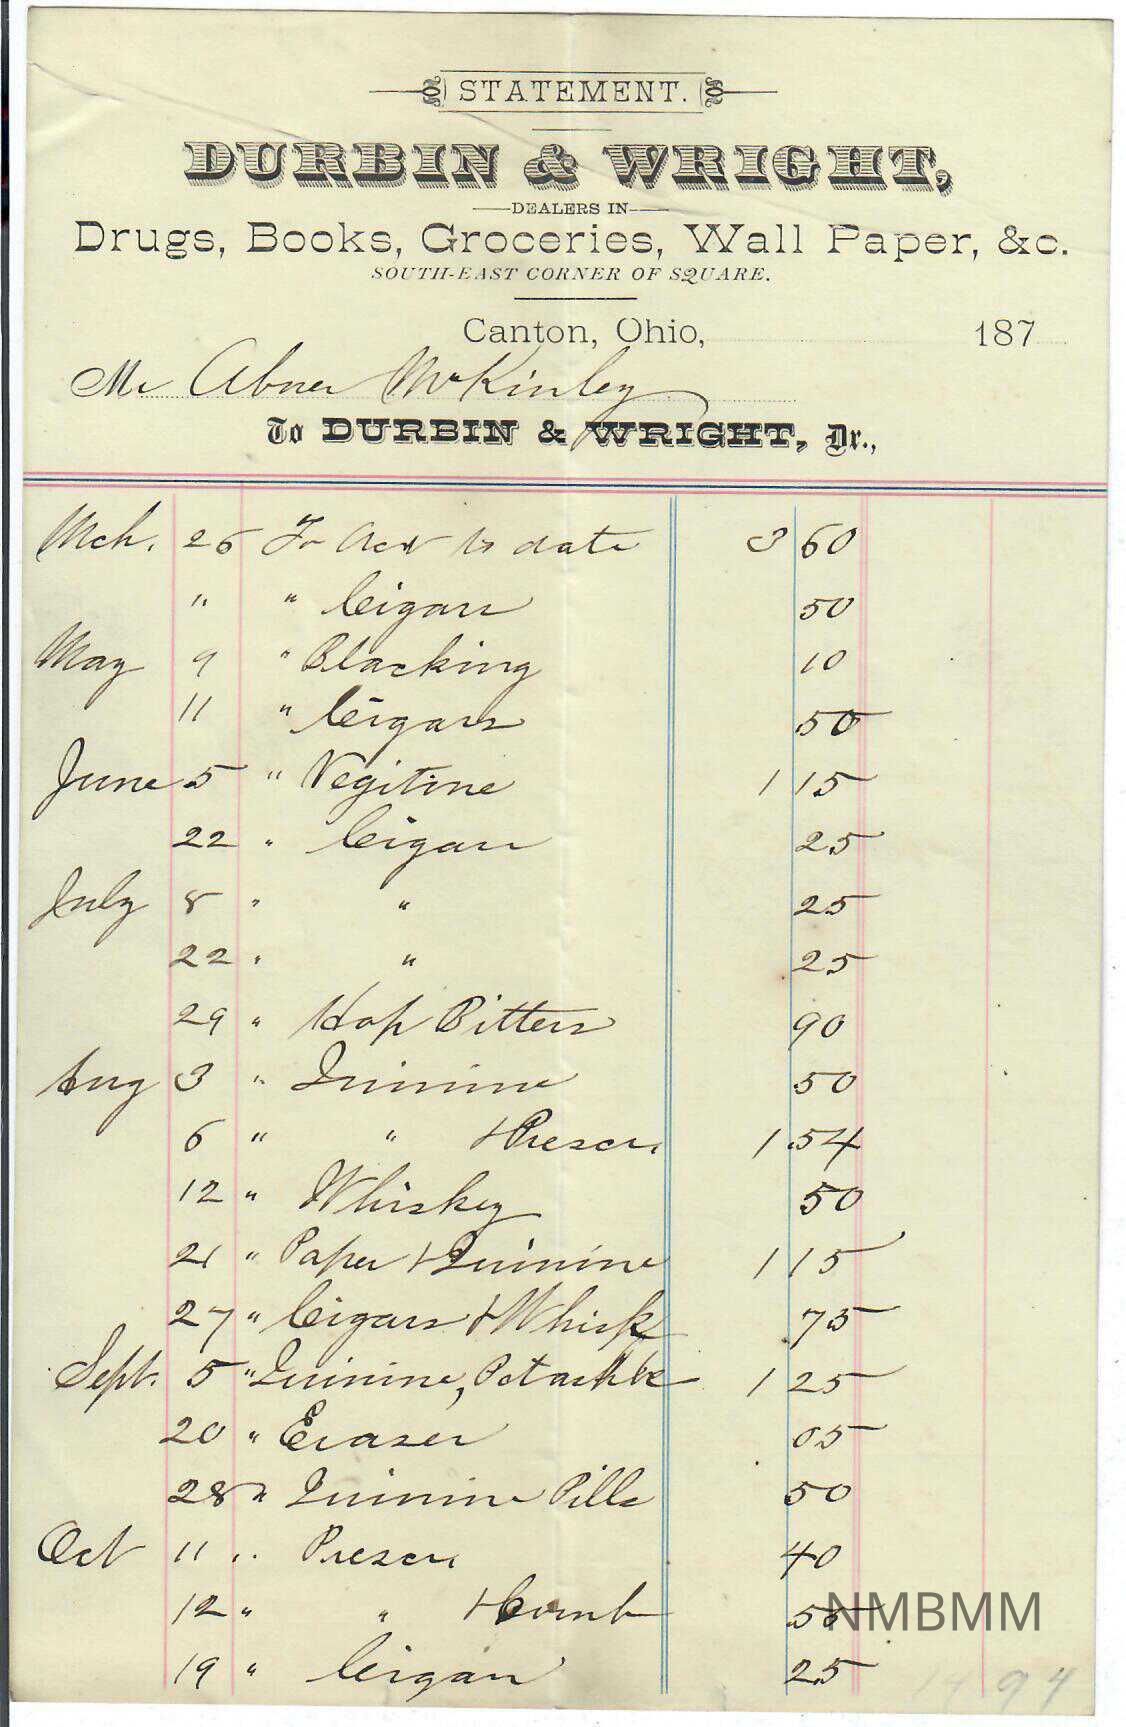 STATEMENT.
DURBIN & WRIGHT,
DEALERS IN
Drugs, Books, Groceries, Wall Paper, &c.
SOUTH-EAST CORNER OF SQUARE.
Canton, Ohio, 187
Mr Abner McKinley
To DURBIN & WRIGHT, Dr.,
Mch. 26 To Act to date 3 60
" " Cigars 50
May 9 " Blacking 10
11 " Cigars 50
June 5 " Vegitine 1 15
22 " Cigars 25
July 8 " " 25
22 " " 25
29 " Hop Bitters 90
Aug 3 " Quinine 50
6 " " & Prescr. 1 54
12 " Whiskey 50
21 " Paper & Quinine 1 15
27 " Cigars & Whisk 75
Sept. 5 " Quinine, Potash &c 1 25
20 " Eraser 05
28 " Quinine Pills 50
Oct 11 " Prescr. 40
12 " " & Comb
19 " Cigars 25
NMBMM
94